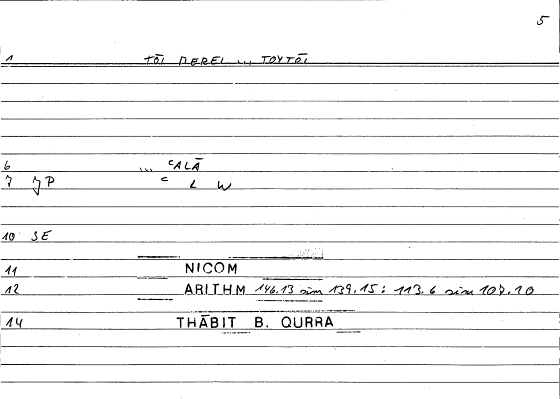 5
1 TŌI MEREI ... TOYTŌI
6 ... ʿALĀ
7 JP ʿ L W
10 SE
11 NICOM
12 ARITHM 146.13 sim 139.15 : 113.6 sim 107.10
14 THĀBIT B. QURRA